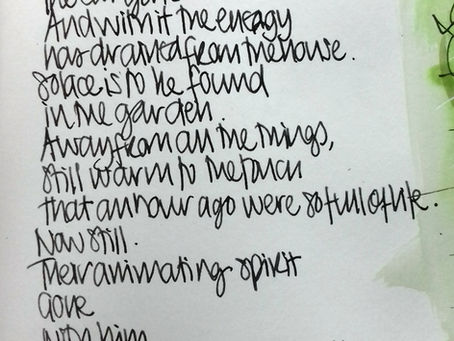 And with it the energy
has drained from the house.
Solace is to be found
in the garden.
Away from all the things,
still warm to the touch
that an hour ago were so full of life.
Now still.
Their animating spirit
gone
with him